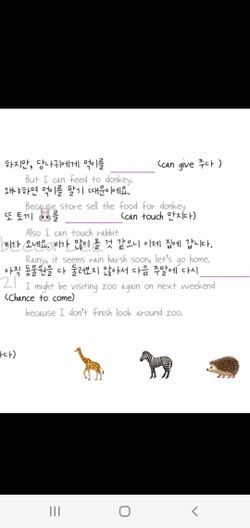 하지만, 당나귀에게 먹이를 ______ (can give 주다 )
But I can feed to donkey.
왜냐하면 먹이를 팔기 때문이에요.
Because store sell the food for donkey
또 토끼 를 ______ (can touch 만지다)
Also I can touch rabbit
비가 오네요. 비가 많이 올 것 같으니 이제 집에 갑니다.
Rainy, it seems rain harsh soon, let's go home.
아직 동물원을 다 둘러보지 않아서 다음 주말에 다시 ______
21 I might be visiting zoo again on next weekend
(Chance to come)
because I don't finish look around zoo.
다)